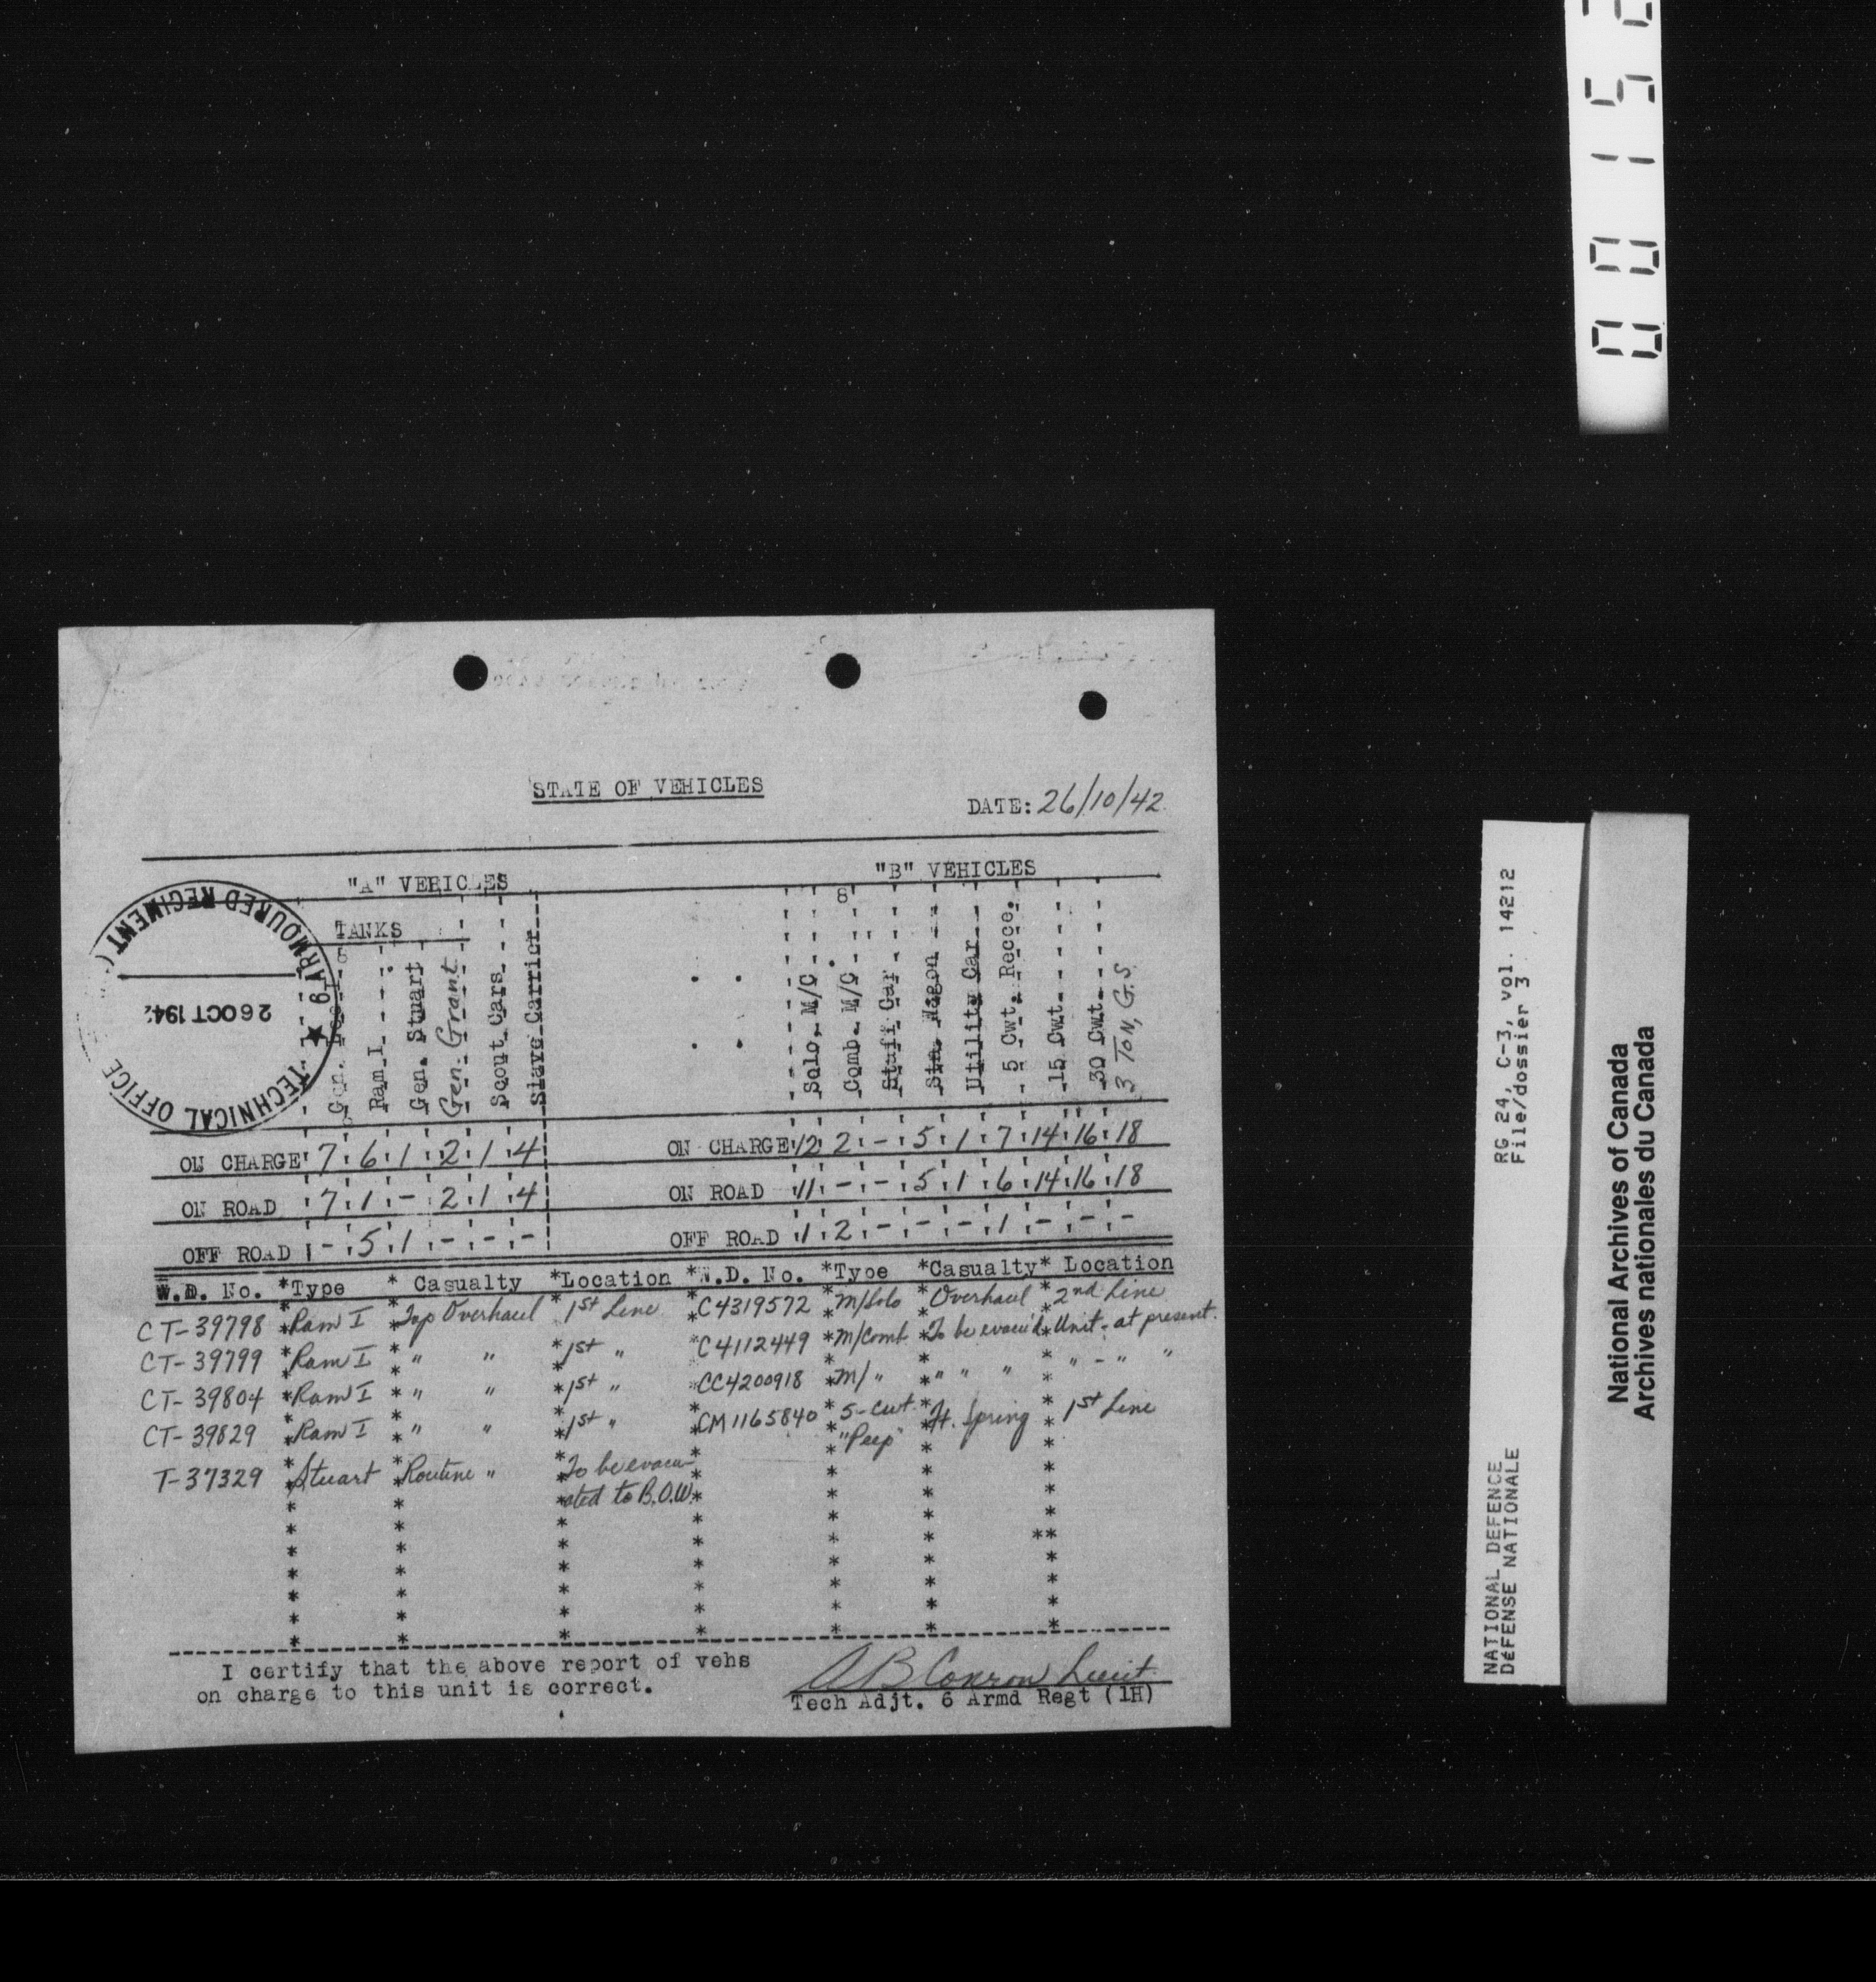 0 0 1 5 2
STATE OF VEHICLES
DATE: 26/10/42
"A" VEHICLES
"B" VEHICLES
TANKS
ARMOURED REGIMENT
26 OCT 194
TECHNICAL OFFICE
Gen.
Ram I
Gen. Stuart
Gen. Grant
Scout Cars
Slave Carrier
Solo, M/C
Comb. M/C
Staff Car
Stn. Wagon
Utility Car
5 Cwt. Recce.
15 Cwt.
30 Cwt.
3 TON, G.S
ON CHARGE 7 6 1 2 1 4 ON CHARGE 12 2 - 5 1 7 14 16 18
ON ROAD 7 1 - 2 1 4 ON ROAD 11 - - 5 1 6 14 16 18
OFF ROAD - 5 1 - - - OFF ROAD 1 2 - - - 1 - - -
W.D. No. *Type * Casualty *Location *W.D. No. *Type *Casualty* Location
CT-39798 *Ram I *Top Overhaul *1st Line *C4319572 *M/Solo *Overhaul *2nd Line
CT-39799 *Ram I * " " *1st " *C4112449 *M/Comb *To be evacu'd *Unit - at present.
CT-39804 *Ram I * " " *1st " *CC4200918 *M/ " * " " " * " - " "
CT-39829 *Ram I * " " *1st " *CM1165840 *5-cwt. "Peep" *Ft. Spring * 1st Line
T-37329 *Stuart *Routine " *To be evacu-
ated to B.O.W.
I certify that the above report of vehs
on charge to this unit is correct.
A B Conron Lieut
Tech Adjt. 6 Armd Regt (1H)
NATIONAL DEFENCE RG 24, C-3, vol. 14212
DÉFENSE NATIONALE File/dossier 3
National Archives of Canada
Archives nationales du Canada